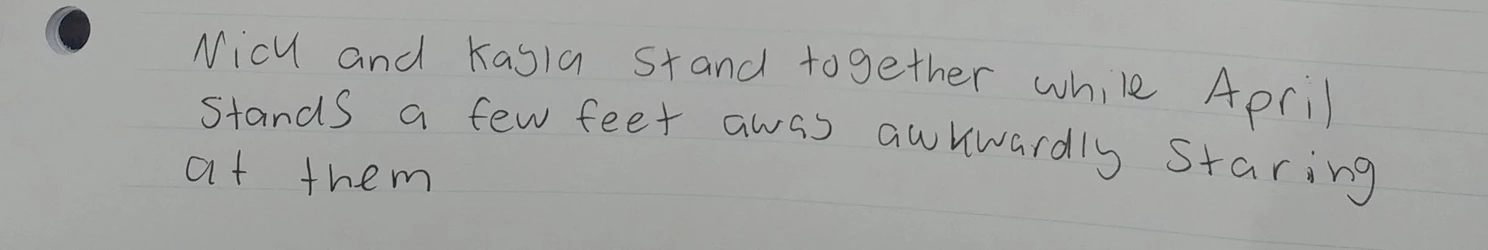 Nick and Kayla stand together while April
stands a few feet away awkwardly staring
at them